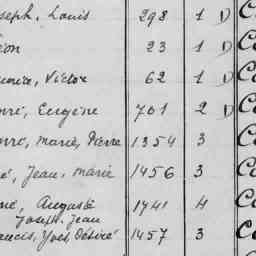 oseph, Louis 298 1 D Co
éon 23 1 D Co
Victor 62 1 D Co
nri, Eugène 701 2 D Co
erre, Marie, Pierre 1354 3 Co
é, Jean, Marie 1456 3 Co
né, Auguste 1741 4 Co
Joseph, Jean
ancis, Yves, Désiré 1457 3 Co